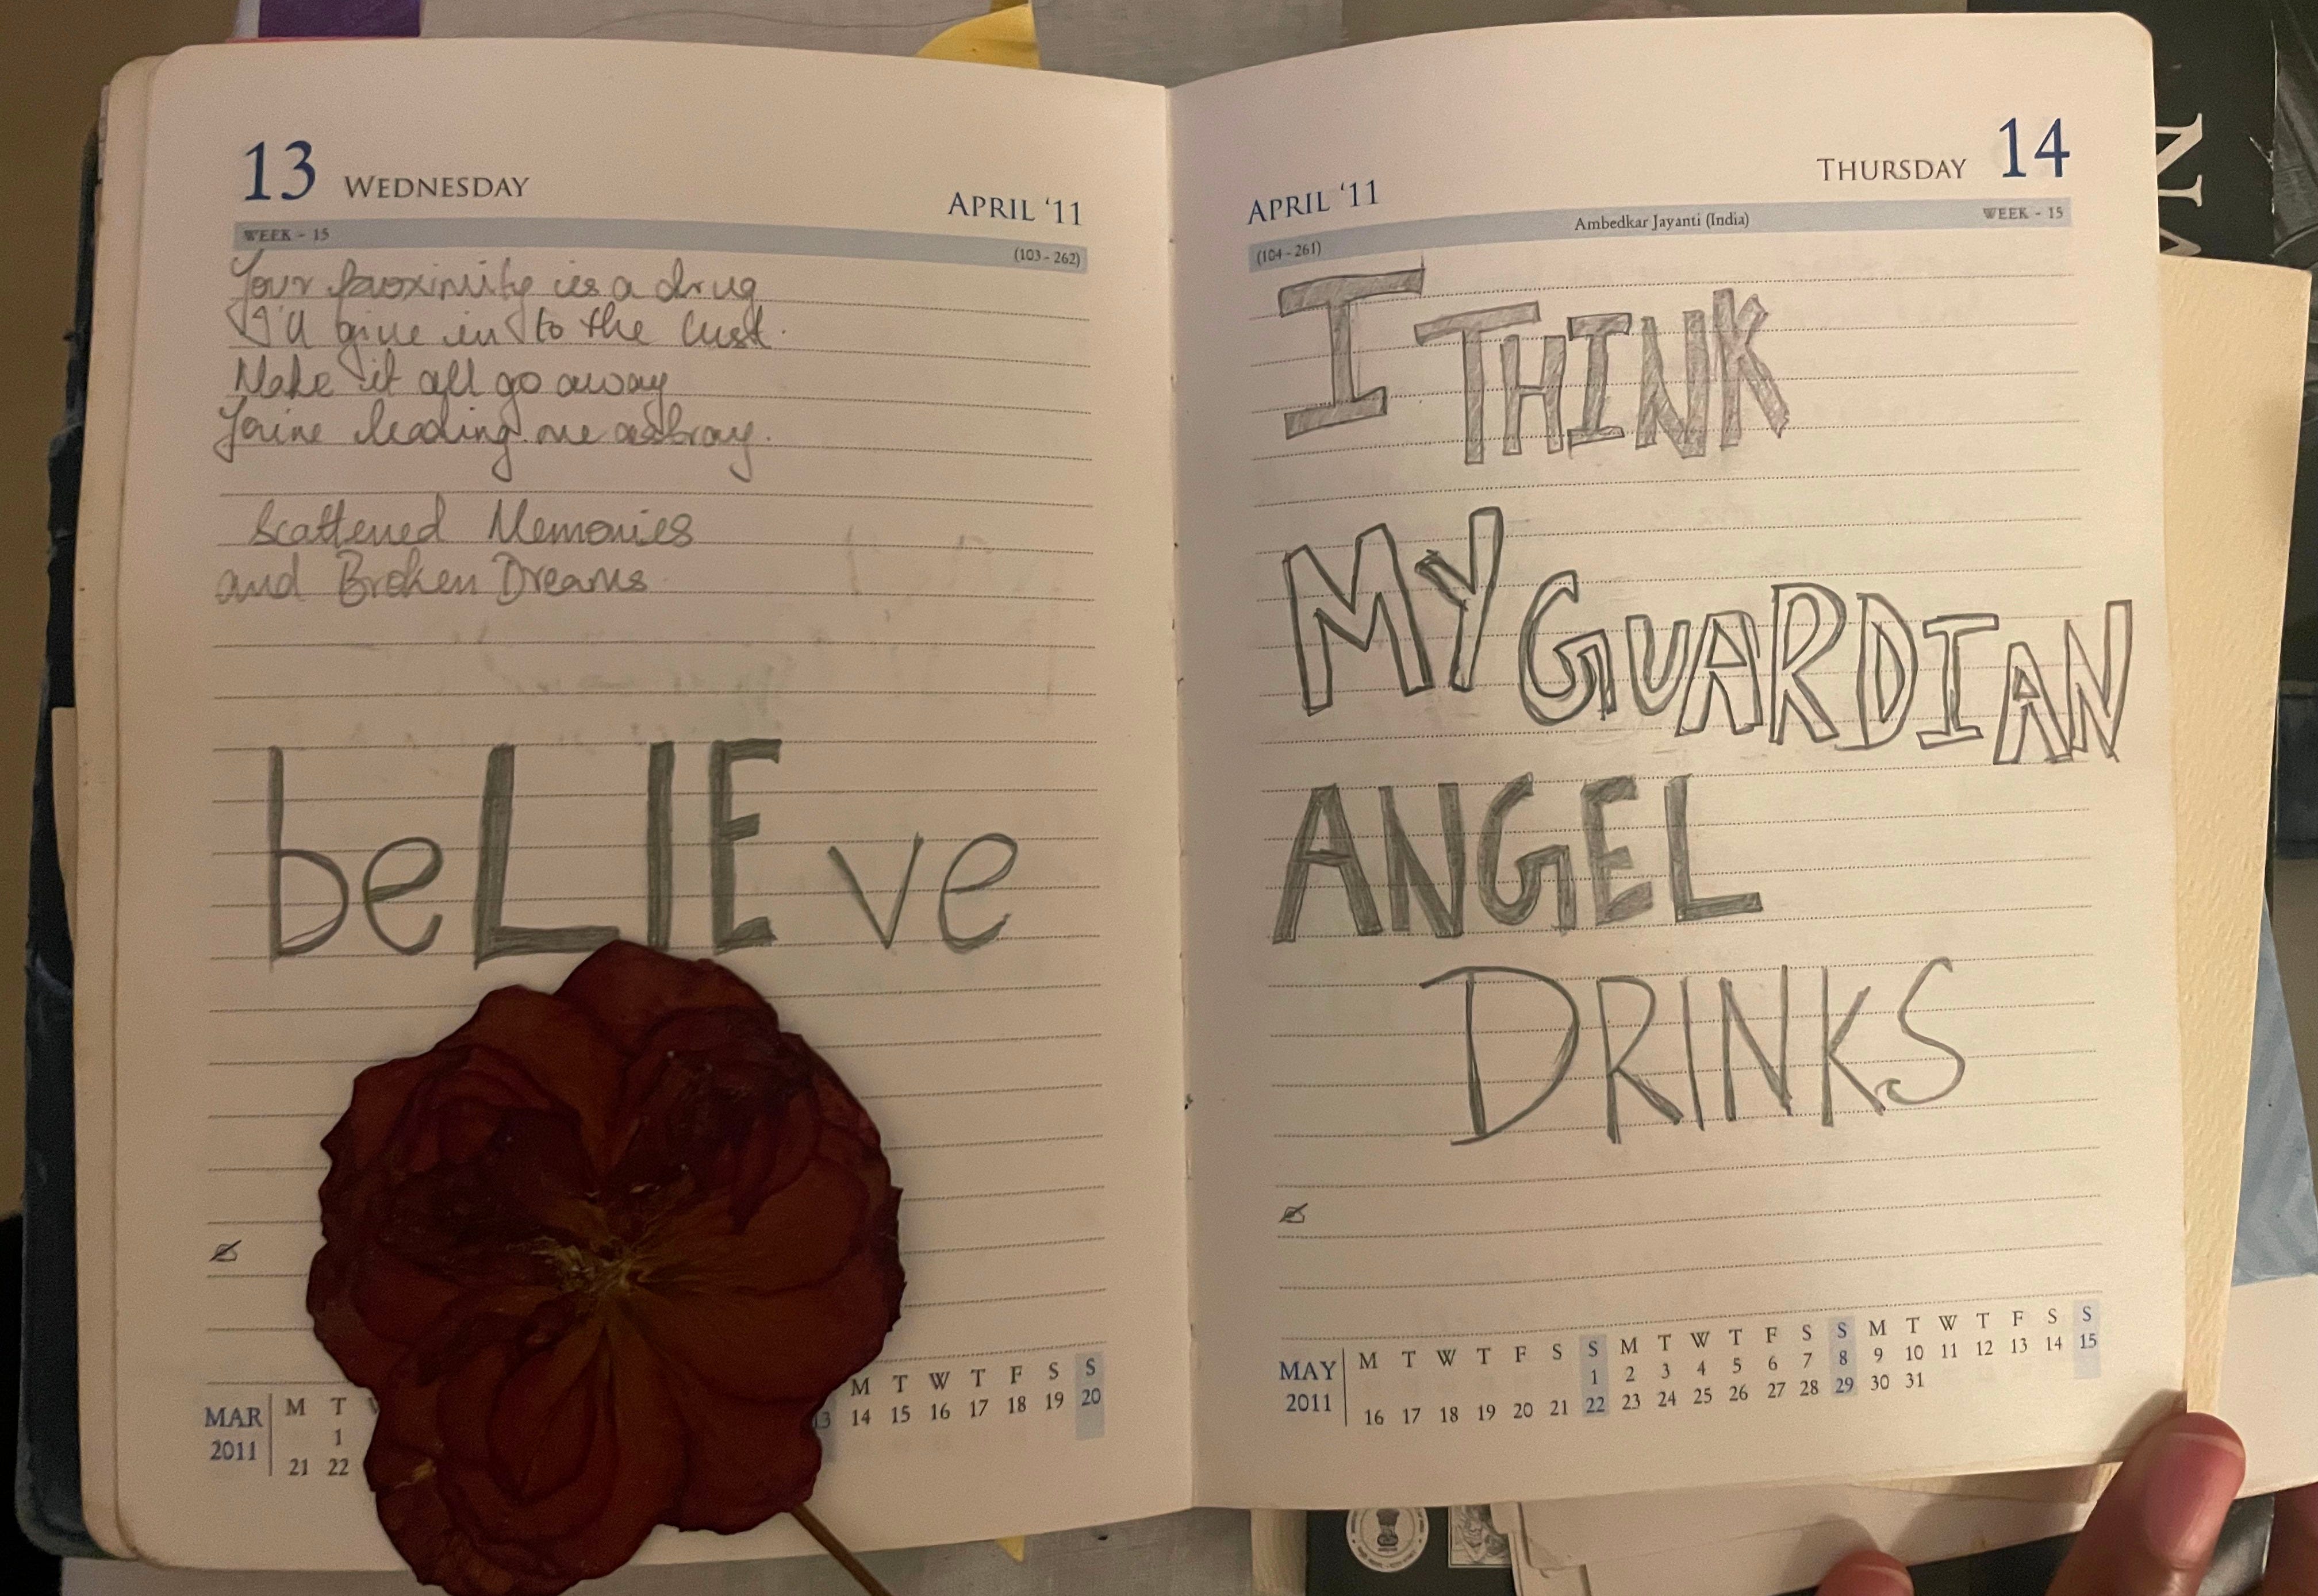 13 WEDNESDAY
APRIL '11
WEEK - 15
(103 - 262)
Your proximity is a drug
I'll give in to the lust.
Make it all go away
You're leading me astray.
Scattered Memories
and Broken Dreams.
beLIEve
MAR
2011
M T
M T W T F S S
1
13 14 15 16 17 18 19 20
21 22
APRIL '11
THURSDAY 14
(104 - 261)
Ambedkar Jayanti (India)
WEEK - 15
I THINK
MY GUARDIAN
ANGEL
DRINKS
MAY
2011
M T W T F S S M T W T F S S M T W T F S S
1 2 3 4 5 6 7 8 9 10 11 12 13 14 15
16 17 18 19 20 21 22 23 24 25 26 27 28 29 30 31